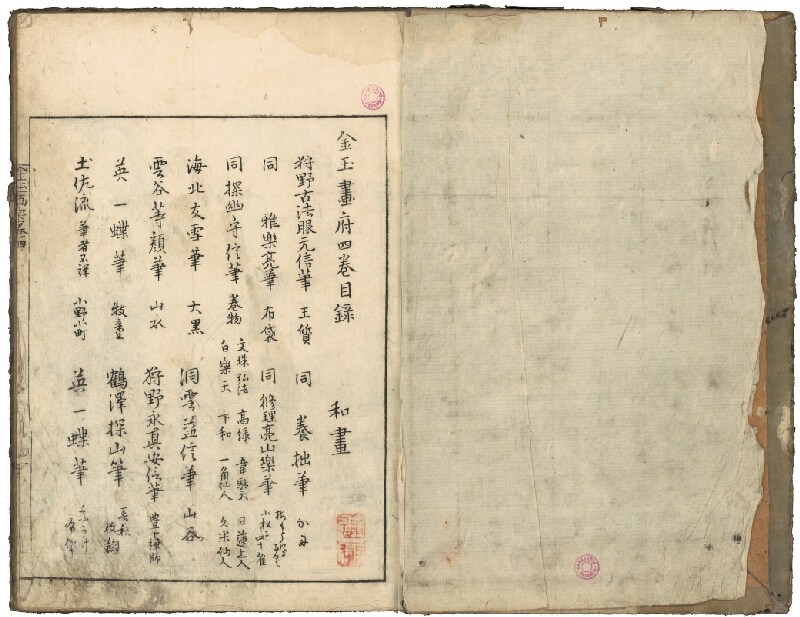 金玉畫府四巻目録
和畫
狩野古法眼元信筆 王質 同 養拙筆
同 雅樂亮筆 布袋 同 修理亮山樂筆
同探幽守信筆 巻物 文珠 弘法 高祿 日蓮上人
白樂天 下和 一角仙人 久米仙人
海北友雪筆 大黒 洞雲益信筆 山谷
雲谷等顔筆 山水 狩野永真安信筆 豊干禅師
英一蝶筆 牧童 鶴澤探山筆
土佐流 筆者不詳 小野小町 英一蝶筆